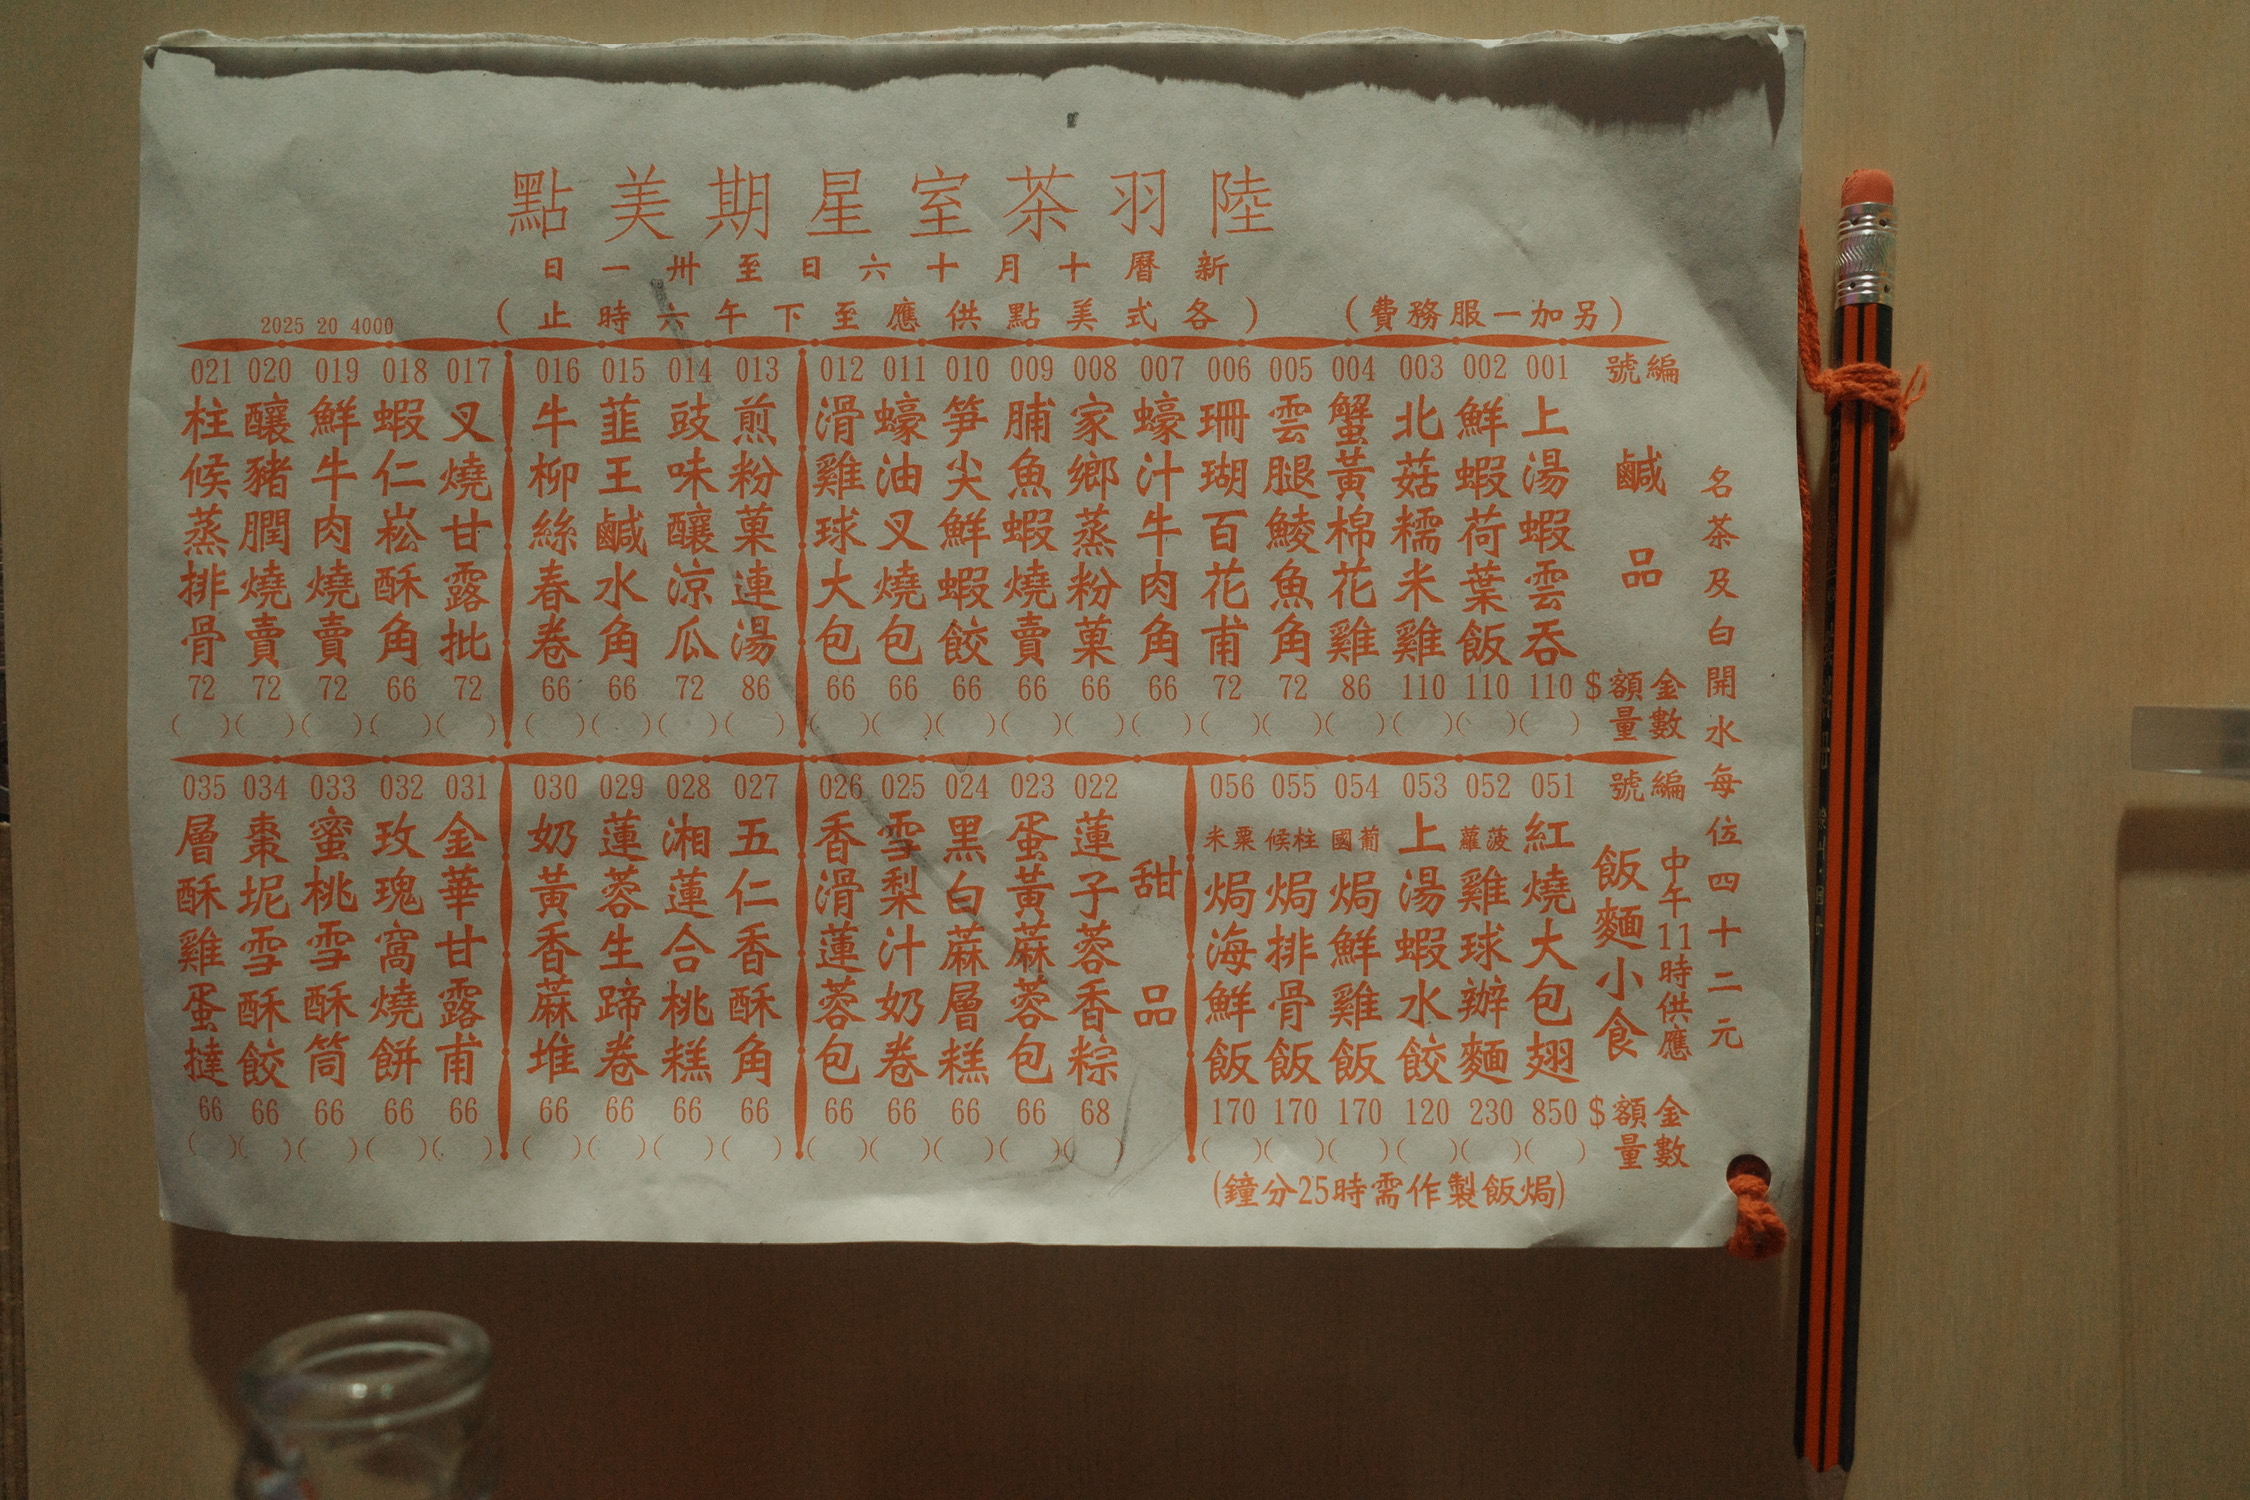 陸羽茶室星期美點
新曆十月十六日至卅一日
(各式美點供應至下午六時止)
(另加一服務費)
2025 20 4000
名茶及白開水每位四十二元
編號
鹹品
金額$
數量
001 上湯蝦雲吞 110 ( )
002 鮮蝦荷葉飯 110 ( )
003 北菇糯米雞 110 ( )
004 蟹黃棉花雞 86 ( )
005 雲腿鯪魚角 72 ( )
006 珊瑚百花甫 72 ( )
007 蠔汁牛肉角 66 ( )
008 家鄉蒸粉菓 66 ( )
009 脯魚蝦燒賣 66 ( )
010 笋尖鮮蝦餃 66 ( )
011 蠔油叉燒包 66 ( )
012 滑雞球大包 66 ( )
013 煎粉菓連湯 86 ( )
014 豉味釀涼瓜 72 ( )
015 韮王鹹水角 66 ( )
016 牛柳絲春卷 66 ( )
017 叉燒甘露批 72 ( )
018 蝦仁崧酥角 66 ( )
019 鮮牛肉燒賣 72 ( )
020 釀豬膶燒賣 72 ( )
021 柱候蒸排骨 72 ( )
編號
中午11時供應
飯麵小食
金額$
數量
051 紅燒大包翅 850 ( )
052 菠蘿雞球辦麵 230 ( )
053 上湯蝦水餃 120 ( )
054 葡國焗鮮雞飯 170 ( )
055 柱候焗排骨飯 170 ( )
056 粟米焗海鮮飯 170 ( )
(焗飯製作需時25分鐘)
甜品
022 蓮子蓉香粽 68 ( )
023 蛋黃蔴蓉包 66 ( )
024 黑白蔴層糕 66 ( )
025 雪梨汁奶卷 66 ( )
026 香滑蓮蓉包 66 ( )
027 五仁香酥角 66 ( )
028 湘蓮合桃糕 66 ( )
029 蓮蓉生蹄卷 66 ( )
030 奶黃香蔴堆 66 ( )
031 金華甘露甫 66 ( )
032 玫瑰窩燒餅 66 ( )
033 蜜桃雪酥筒 66 ( )
034 棗坭雪酥餃 66 ( )
035 層酥雞蛋撻 66 ( )